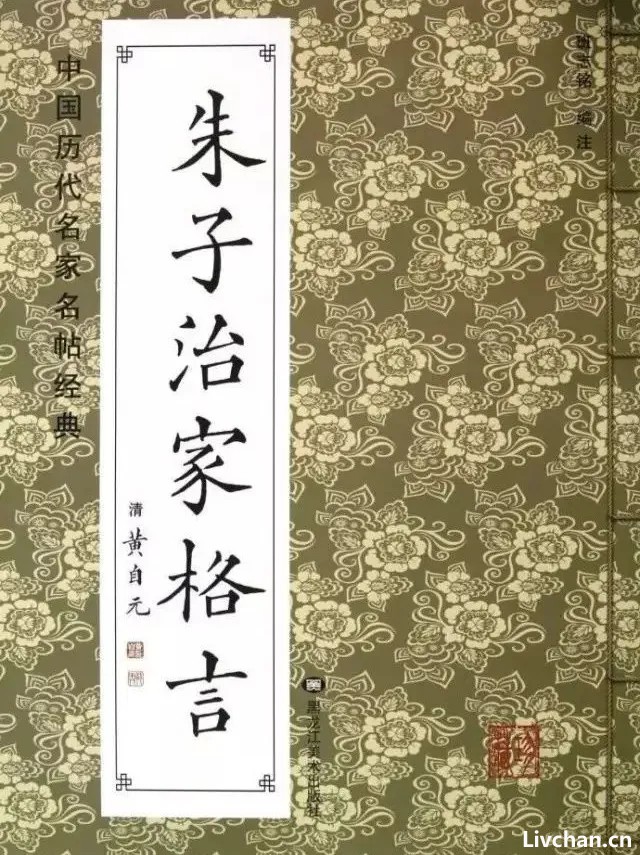 中国历代名家名帖经典
朱子治家格言
清 黄自元
编注
黑龙江美术出版社
Livchan.cn